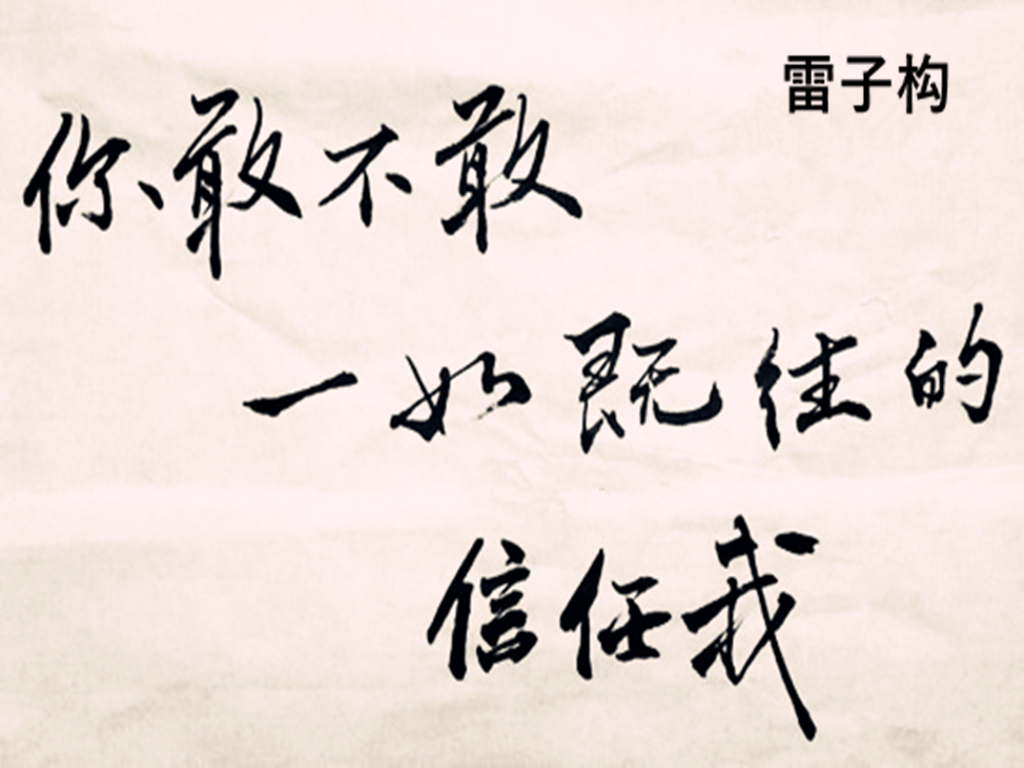 雷子构
你敢不敢
一如既往的
信任我